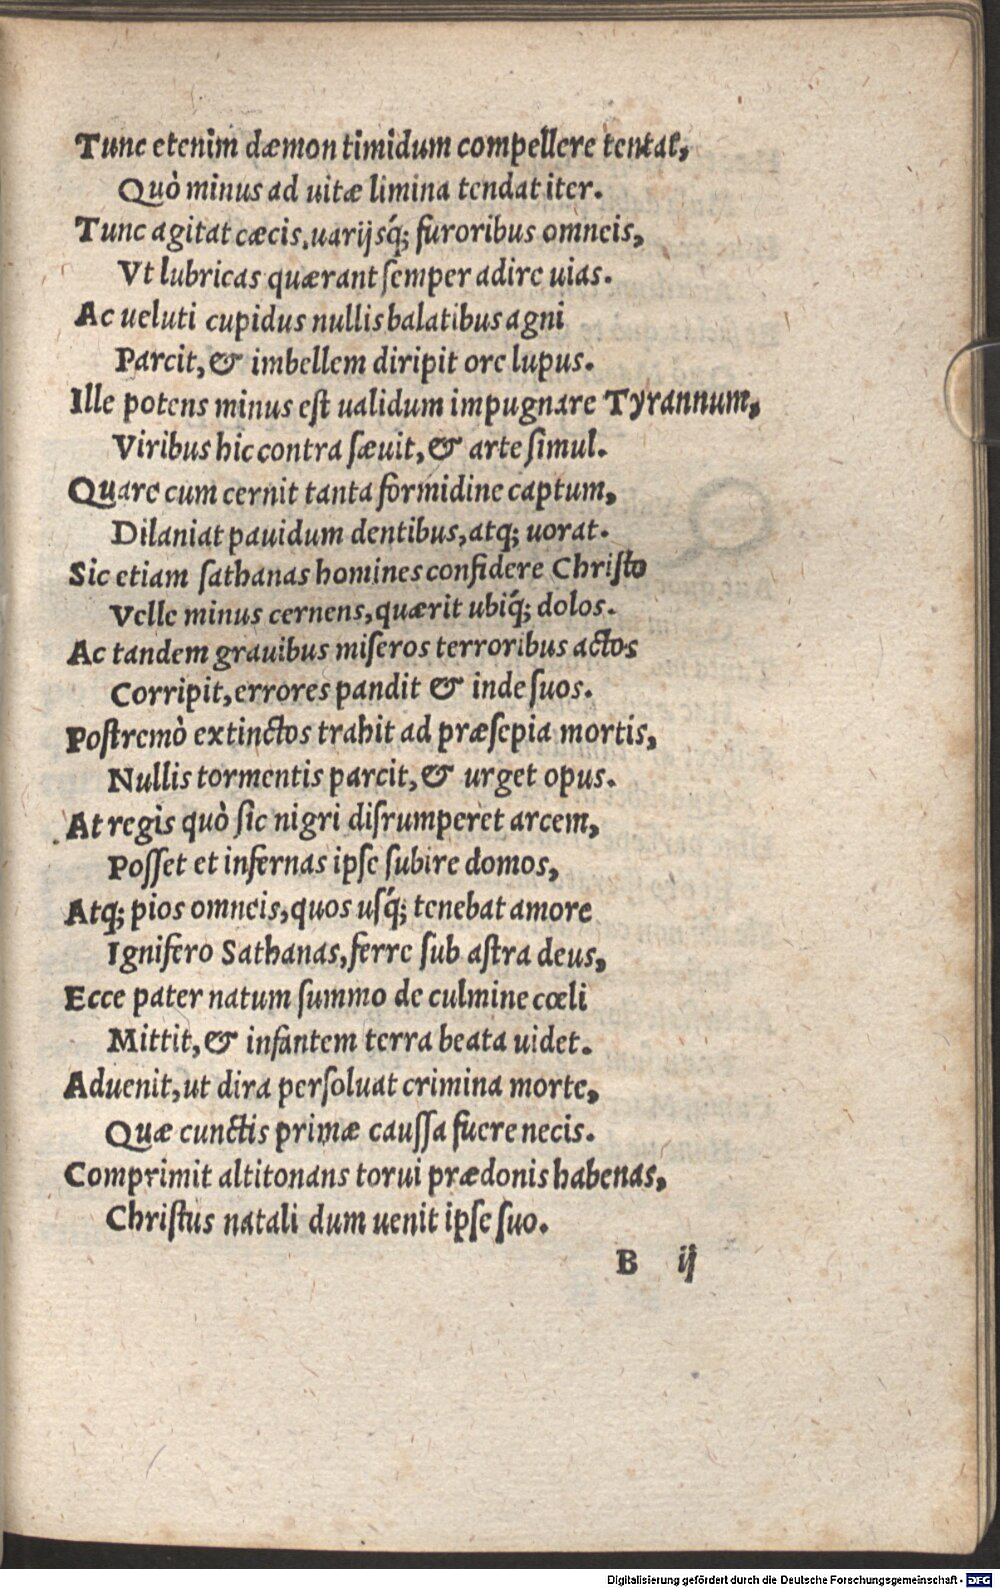 Tunc etenim dæmon timidum compellere tentat,
Quò minus ad uitæ limina tendat iter.
Tunc agitat cæcis, uarijsq́; furoribus omneis,
Vt lubricas quærant ſemper adire uias.
Ac ueluti cupidus nullis balatibus agni
Parcit, & imbellem diripit ore lupus.
Ille potens minus eſt ualidum impugnare Tyrannum,
Viribus hic contra ſæuit, & arte ſimul.
Quare cum cernit tanta formidine captum,
Dilaniat pauidum dentibus, atq; uorat.
Sic etiam ſathanas homines confidere Chriſto
Velle minus cernens, quærit ubiq́; dolos.
Ac tandem grauibus miſeros terroribus actos
Corripit, errores pandit & inde ſuos.
Poſtremò extinctos trahit ad præſepia mortis,
Nullis tormentis parcit, & urget opus.
At regis quò ſic nigri diſrumperet arcem,
Poſſet et infernas ipſe ſubire domos,
Atq; pios omneis, quos uſq́; tenebat amore
Ignifero Sathanas, ferre ſub aſtra deus,
Ecce pater natum ſummo de culmine cœli
Mittit, & infantem terra beata uidet.
Aduenit, ut dira perſoluat crimina morte,
Quæ cunctis primæ cauſſa fuere necis.
Comprimit altitonans torui prædonis habenas,
Chriſtus natali dum uenit ipſe ſuo.
B ij
Digitalisierung gefördert durch die Deutsche Forschungsgemeinschaft - DFG